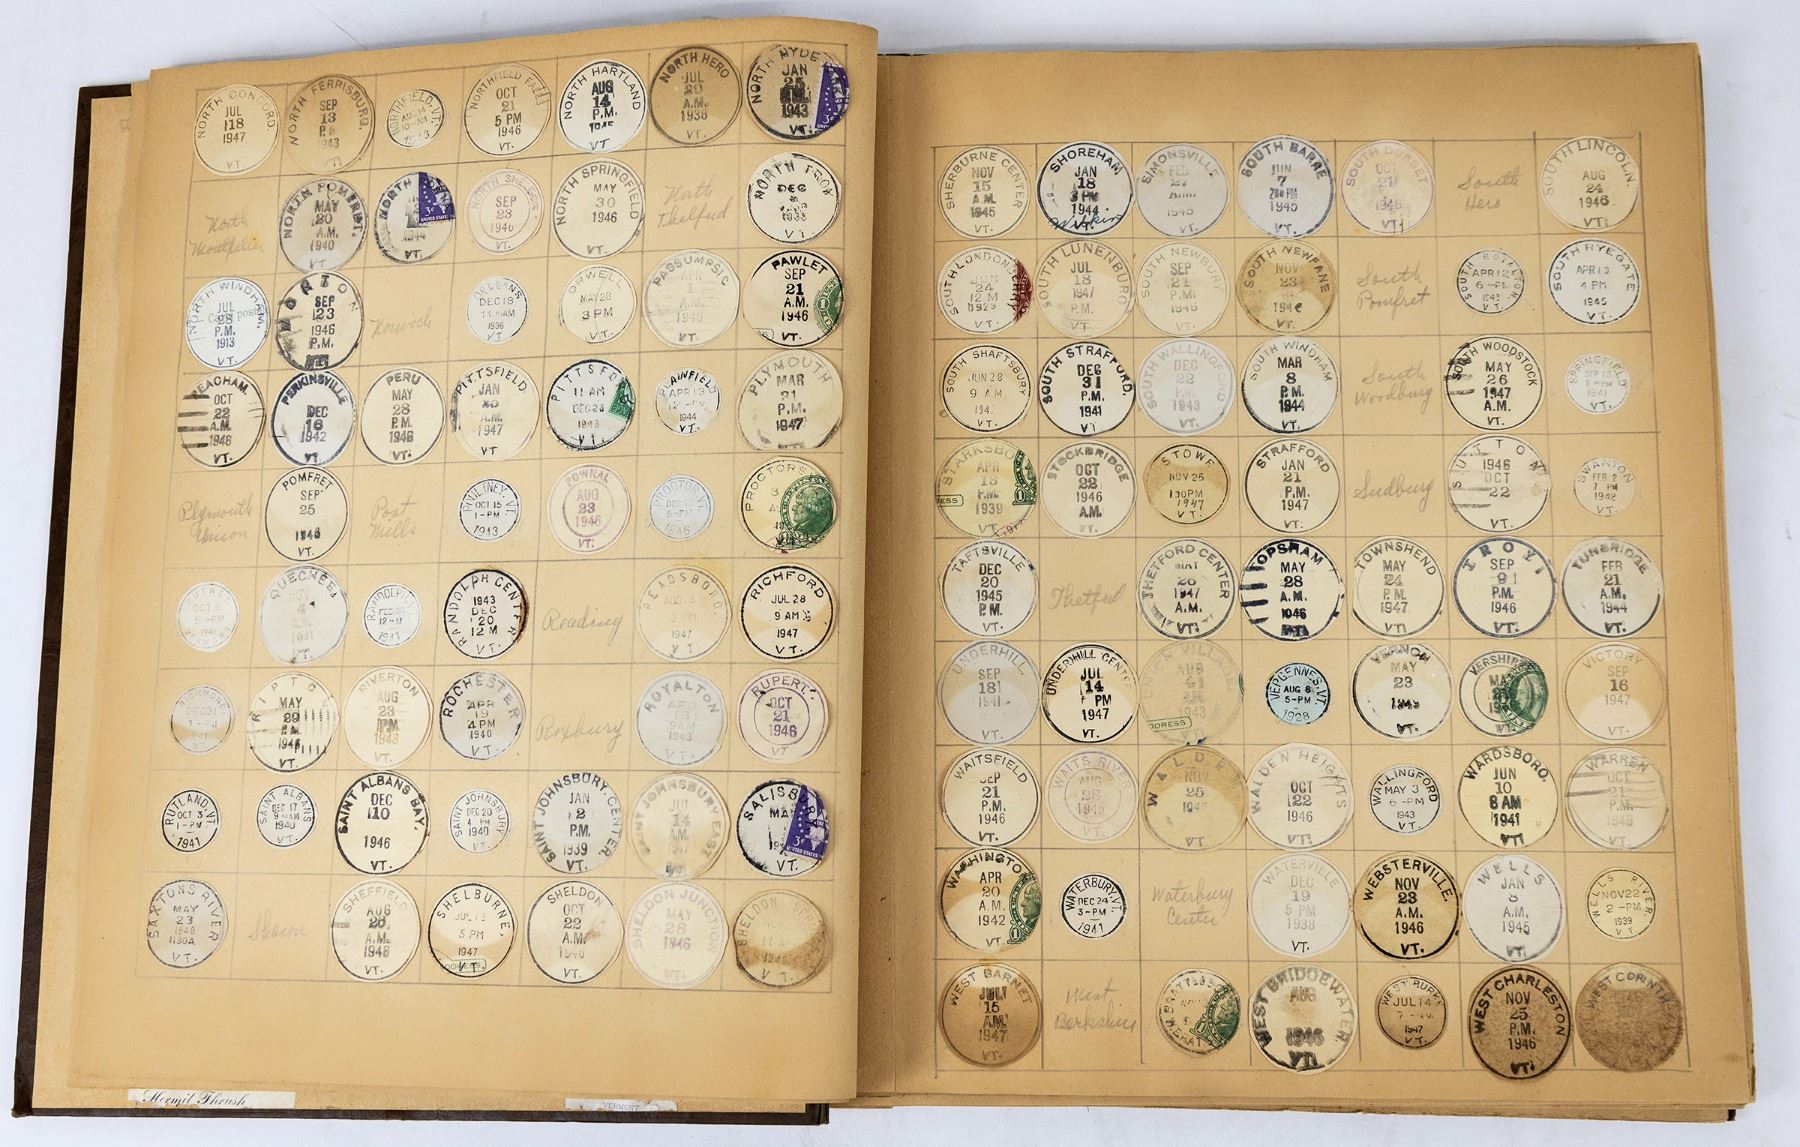 NORTH CONCORD.
JUL
18
1947
VT.
NORTH FERRISBURG.
SEP
13
VT.
NORTHFIELD, VT.
NORTHFIELD FALLS
OCT
21
5 PM
1946
VT.
NORTH HARTLAND
AUG
14
P.M.
VT
NORTH HERO
JUL
20
A.M.
1938
VT.
NORTH HYDE
JAN
25
1943
VT.
North
Montpelier
NORTH POMFRET.
MAY
20
A.M.
1940
VT
NORTH
3¢
UNITED STATES
SEP
23
1946
VT.
NORTH SPRINGFIELD
MAY
30
1946
VT
North
Thetford
NORTH TROY
DEC
VT.
NORTH WINDHAM.
JUL
28
P.M.
1913
VT.
NORTON
SEP
23
1946
P.M.
VT.
Norwich
ORLEANS
DEC 18
1936
VT.
ORWELL
MAY 28
3 PM
VT.
PASSUMPSIC
APR
1
A.M.
1946
VT.
PAWLET
SEP
21
A.M.
1946
VT.
PEACHAM.
OCT
22
A.M.
1946
VT.
PERKINSVILLE
DEC
16
1942
VT
PERU
MAY
28
P.M.
1946
VT.
PITTSFIELD.
JAN
A.M.
1947
VT.
PITTSFORD
11 AM
VT.
PLAINFIELD
APR 13
1944
VT.
PLYMOUTH
MAR
21
P.M.
1947
VT.
Plymouth
Union
POMFRET
SEP
25
1946
VT.
Post
Mills
POULTNEY, VT.
OCT 15
1-PM
1943
POWNAL
AUG
23
1946
VT.
PROCTOR, VT.
5-PM
1946
PROCTORS
OCT 6
5-PM
1941
QUECHEE
NOV
4
A.M.
VT.
RANDOLPH, VT.
12-M
1941
RANDOLPH CENTER
1943
DEC
20
12 M
VT.
Reading
READSBORO.
3 PM
1947
VT.
RICHFORD
JUL 28
9 AM
1947
VT.
RICHMOND
VT.
RIPTON
MAY
29
P.M.
1946
VT.
RIVERTON
AUG
23
P.M.
1946
VT.
ROCHESTER
APR
19
4 PM
1940
VT.
Roxbury
ROYALTON
1943
VT.
RUPERT
OCT
21
1946
VT
RUTLAND, VT.
OCT 3
1-PM
1941
SAINT ALBANS
DEC 17
1940
VT.
SAINT ALBANS BAY.
DEC
10
1946
VT.
SAINT JOHNSBURY
DEC 20
4 PM
1940
VT.
SAINT JOHNSBURY CENTER.
JAN
2
P.M.
1939
VT.
SAINT JOHNSBURY EAST
JUL
14
A.M.
VT
SALISBURY
3¢
UNITED STATES
VT.
SAXTONS RIVER
MAY
23
1946
VT.
Sharon
SHEFFIELD
AUG
26
A.M.
1946
VT.
SHELBURNE
5 PM
1947
VT.
SHELDON
OCT
22
A.M.
VT.
SHELDON JUNCTION
MAY
28
1946
VT.
SHELDON
VT.
Hermit Thrush
VERMONT
SHERBURNE CENTER
NOV
15
A.M.
1945
VT.
SHOREHAM
JAN
18
3 PM
1944
VT.
SIMONSVILLE
FEB
27
1945
VT.
SOUTH BARRE
JUN
7
1945
VT.
SOUTH DORSET
OCT
21
1946
VT.
South
Hero
SOUTH LINCOLN.
AUG
24
1946
VT.
SOUTH LONDONDERRY
24
12 M
1929
VT.
SOUTH LUNENBURG
JUL
18
1947
P.M.
VT.
SOUTH NEWBURY
SEP
21
P.M.
1946
VT.
SOUTH NEWFANE
NOV
23
VT.
South
Pomfret
SOUTH ROYALTON
APR 12
6-PM
1943
VT.
SOUTH RYEGATE
APR 13
4 PM
1945
VT.
SOUTH SHAFTSBURY
JUN 28
9 AM
VT.
SOUTH STRAFFORD.
DEC
31
P.M.
1941
VT.
SOUTH WALLINGFORD
DEC
22
P.M.
1943
VT.
SOUTH WINDHAM
MAR
8
P.M.
1944
VT.
South
Woodbury
SOUTH WOODSTOCK
MAY
26
1947
A.M.
VT.
SPRINGFIELD
1941
VT.
STARKSBORO
APR
13
P.M.
1939
VT.
STOCKBRIDGE
OCT
22
1946
A.M.
VT.
STOWE
NOV 25
1 30PM
1947
VT.
STRAFFORD
JAN
21
P.M.
1947
VT.
Sudbury
SUTTON
1946
OCT
22
VT.
SWANTON
FEB 2
7 PM
1942
VT.
TAFTSVILLE
DEC
20
1945
P.M.
VT.
Thetford
THETFORD CENTER
MAY
26
1947
A.M.
VT.
TOPSHAM
MAY
28
A.M.
1946
VT.
TOWNSHEND
MAY
24
P.M.
1947
VT.
TROY
SEP
9
P.M.
1946
VT.
TUNBRIDGE
FEB
21
A.M.
1944
VT.
UNDERHILL
SEP
18
1941
VT.
UNDERHILL CENTER
JUL
14
PM
1947
VT.
VILLAGE
AUG
1943
DDRESS
VERGENNES, VT.
AUG 8
5-PM
1928
VERNON
MAY
23
VT.
VERSHIRE
VT.
VICTORY
SEP
16
1947
VT.
WAITSFIELD
SEP
21
P.M.
1946
VT.
WAITS RIVER
AUG
28
1945
VT.
WALDEN
NOV
25
VT.
WALDEN HEIGHTS
OCT
22
1946
VT.
WALLINGFORD
MAY 3
6-PM
1943
VT.
WARDSBORO.
JUN
10
8 AM
1941
VT.
WARREN
OCT
21
P.M.
1946
VT.
WASHINGTON
APR
20
A.M.
1942
VT.
WATERBURY, VT.
DEC 24
3-PM
1941
Waterbury
Center
WATERVILLE
DEC
19
5 PM
1938
VT.
WEBSTERVILLE.
NOV
23
A.M.
1946
VT.
WELLS
JAN
8
A.M.
1945
VT.
WELLS RIVER
NOV 22
2-PM
1939
VT.
WEST BARNET
JUL
15
A.M.
1947
VT.
West
Berkshire
W. BRATTLEBORO
WEST BRIDGEWATER.
AUG
1946
VT.
WEST BURKE
JUL 14
1947
VT.
WEST CHARLESTON
NOV
25
P.M.
1946
VT.
WEST CORINTH